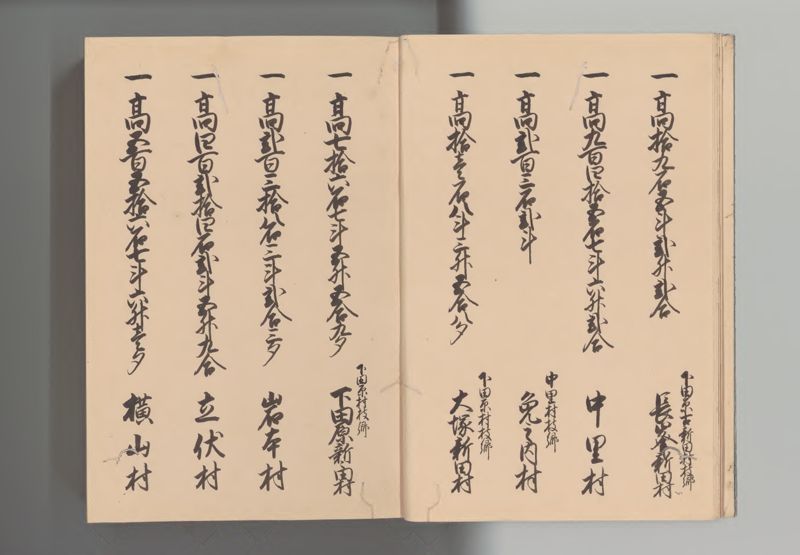 一 高拾九石五斗弐升弐合
下田原古新田村枝郷
長峯新田村
一 高九百四拾五石七斗六升弐合
中里村
一 高弐百三石弐斗
中里村枝郷
免之内村
一 高拾壱石八斗三升五合八夕
下田原村枝郷
大塚新田村
一 高七拾六石七斗五升五合九夕
下田原村枝郷
下田原新田村
一 高弐百三拾八石三斗弐合三夕
岩本村
一 高四百弐拾四石弐斗五升九合
立伏村
一 高五百五拾六石七斗六升壱夕
横山村